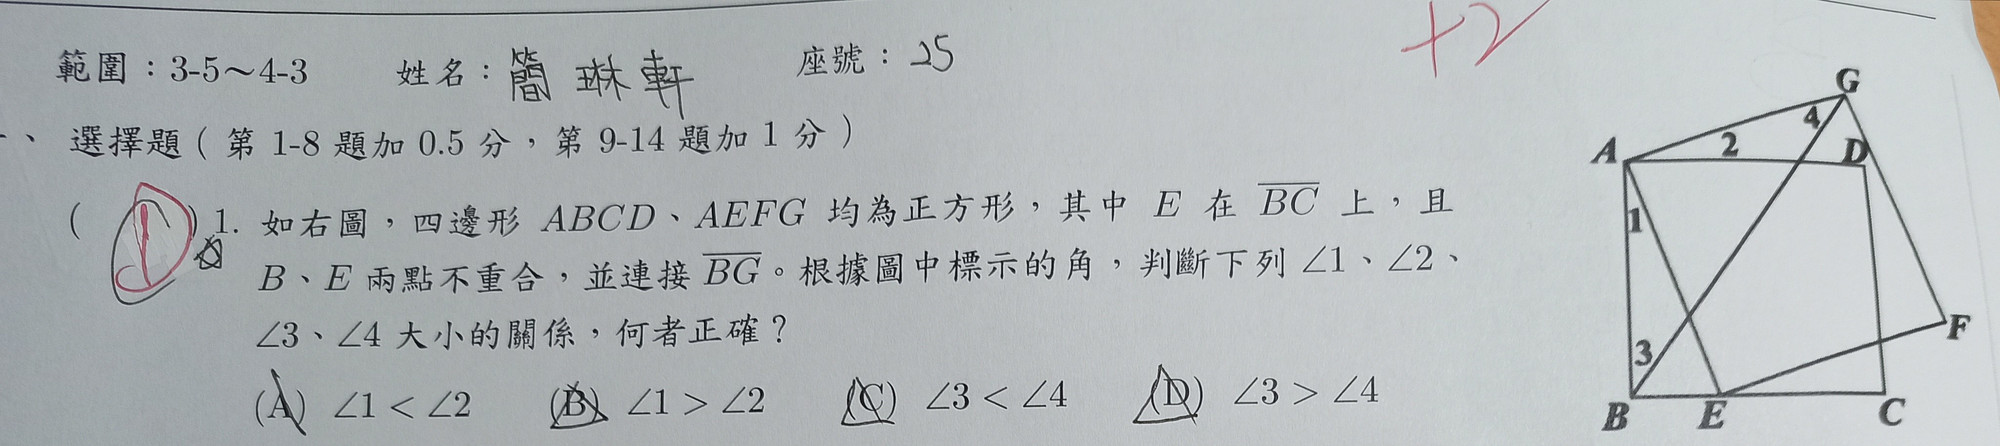 範圍：3-5～4-3 姓名：簡琳軒 座號：25 +2
一、選擇題（第 1-8 題加 0.5 分，第 9-14 題加 1 分）
( D ) 1. 如右圖，四邊形 ABCD、AEFG 均為正方形，其中 E 在 BC 上，且
B、E 兩點不重合，並連接 BG。根據圖中標示的角，判斷下列 ∠1、∠2、
∠3、∠4 大小的關係，何者正確？
(A) ∠1 < ∠2 (B) ∠1 > ∠2 (C) ∠3 < ∠4 (D) ∠3 > ∠4
G
4
A 2 D
1
F
3
B E C